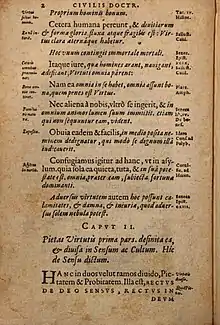 CIVILIS DOCTR.
Proprium hominū bonum.
Cetera humana pereunt, & divitiarum
& formæ gloria fluxa atque fragilis est: Vir-
tus clara æternaque habetur.
Hoc vnum contingit immortale mortali.
Itaque iure, qua homines arant, navigant,
ædificant, Virtuti omnia parent:
Nam ea omnia in se habet, omnia assunt bo-
na, quem penes est Virtus.
Nec aliena ò nobis, vltrò se ingerit, & in
omnium animos lumen suum immittit, etiam
qui non sequuntur eam, vident.
Obuia eadem & facilis, in medio posita ne-
minem dedignatur, qui modo se dignum illa
iudicauerit.
Confugiamus igitur ad hanc, vt in asy-
lum. quia sola ea quieta, tuta, & in suâ pote-
state est. omnia, præter eam, subiecta fortunæ
dominanti.
Adversus virtutem autem hoc possunt ca-
lamitates, & damna, & iniuriæ, quod adver-
sus solem nebula potest.
CAPVT II.
Pietas Virtutis prima pars. definita ea,
& divisa in Sensum ac Cultum. Hîc
de Sensu dictum.
HANC in duos velut ramos divido, Pie-
tatem & Probitatem. Illa est, RECTVS
DE DEO SENSVS, RECTVS IN
DEVM